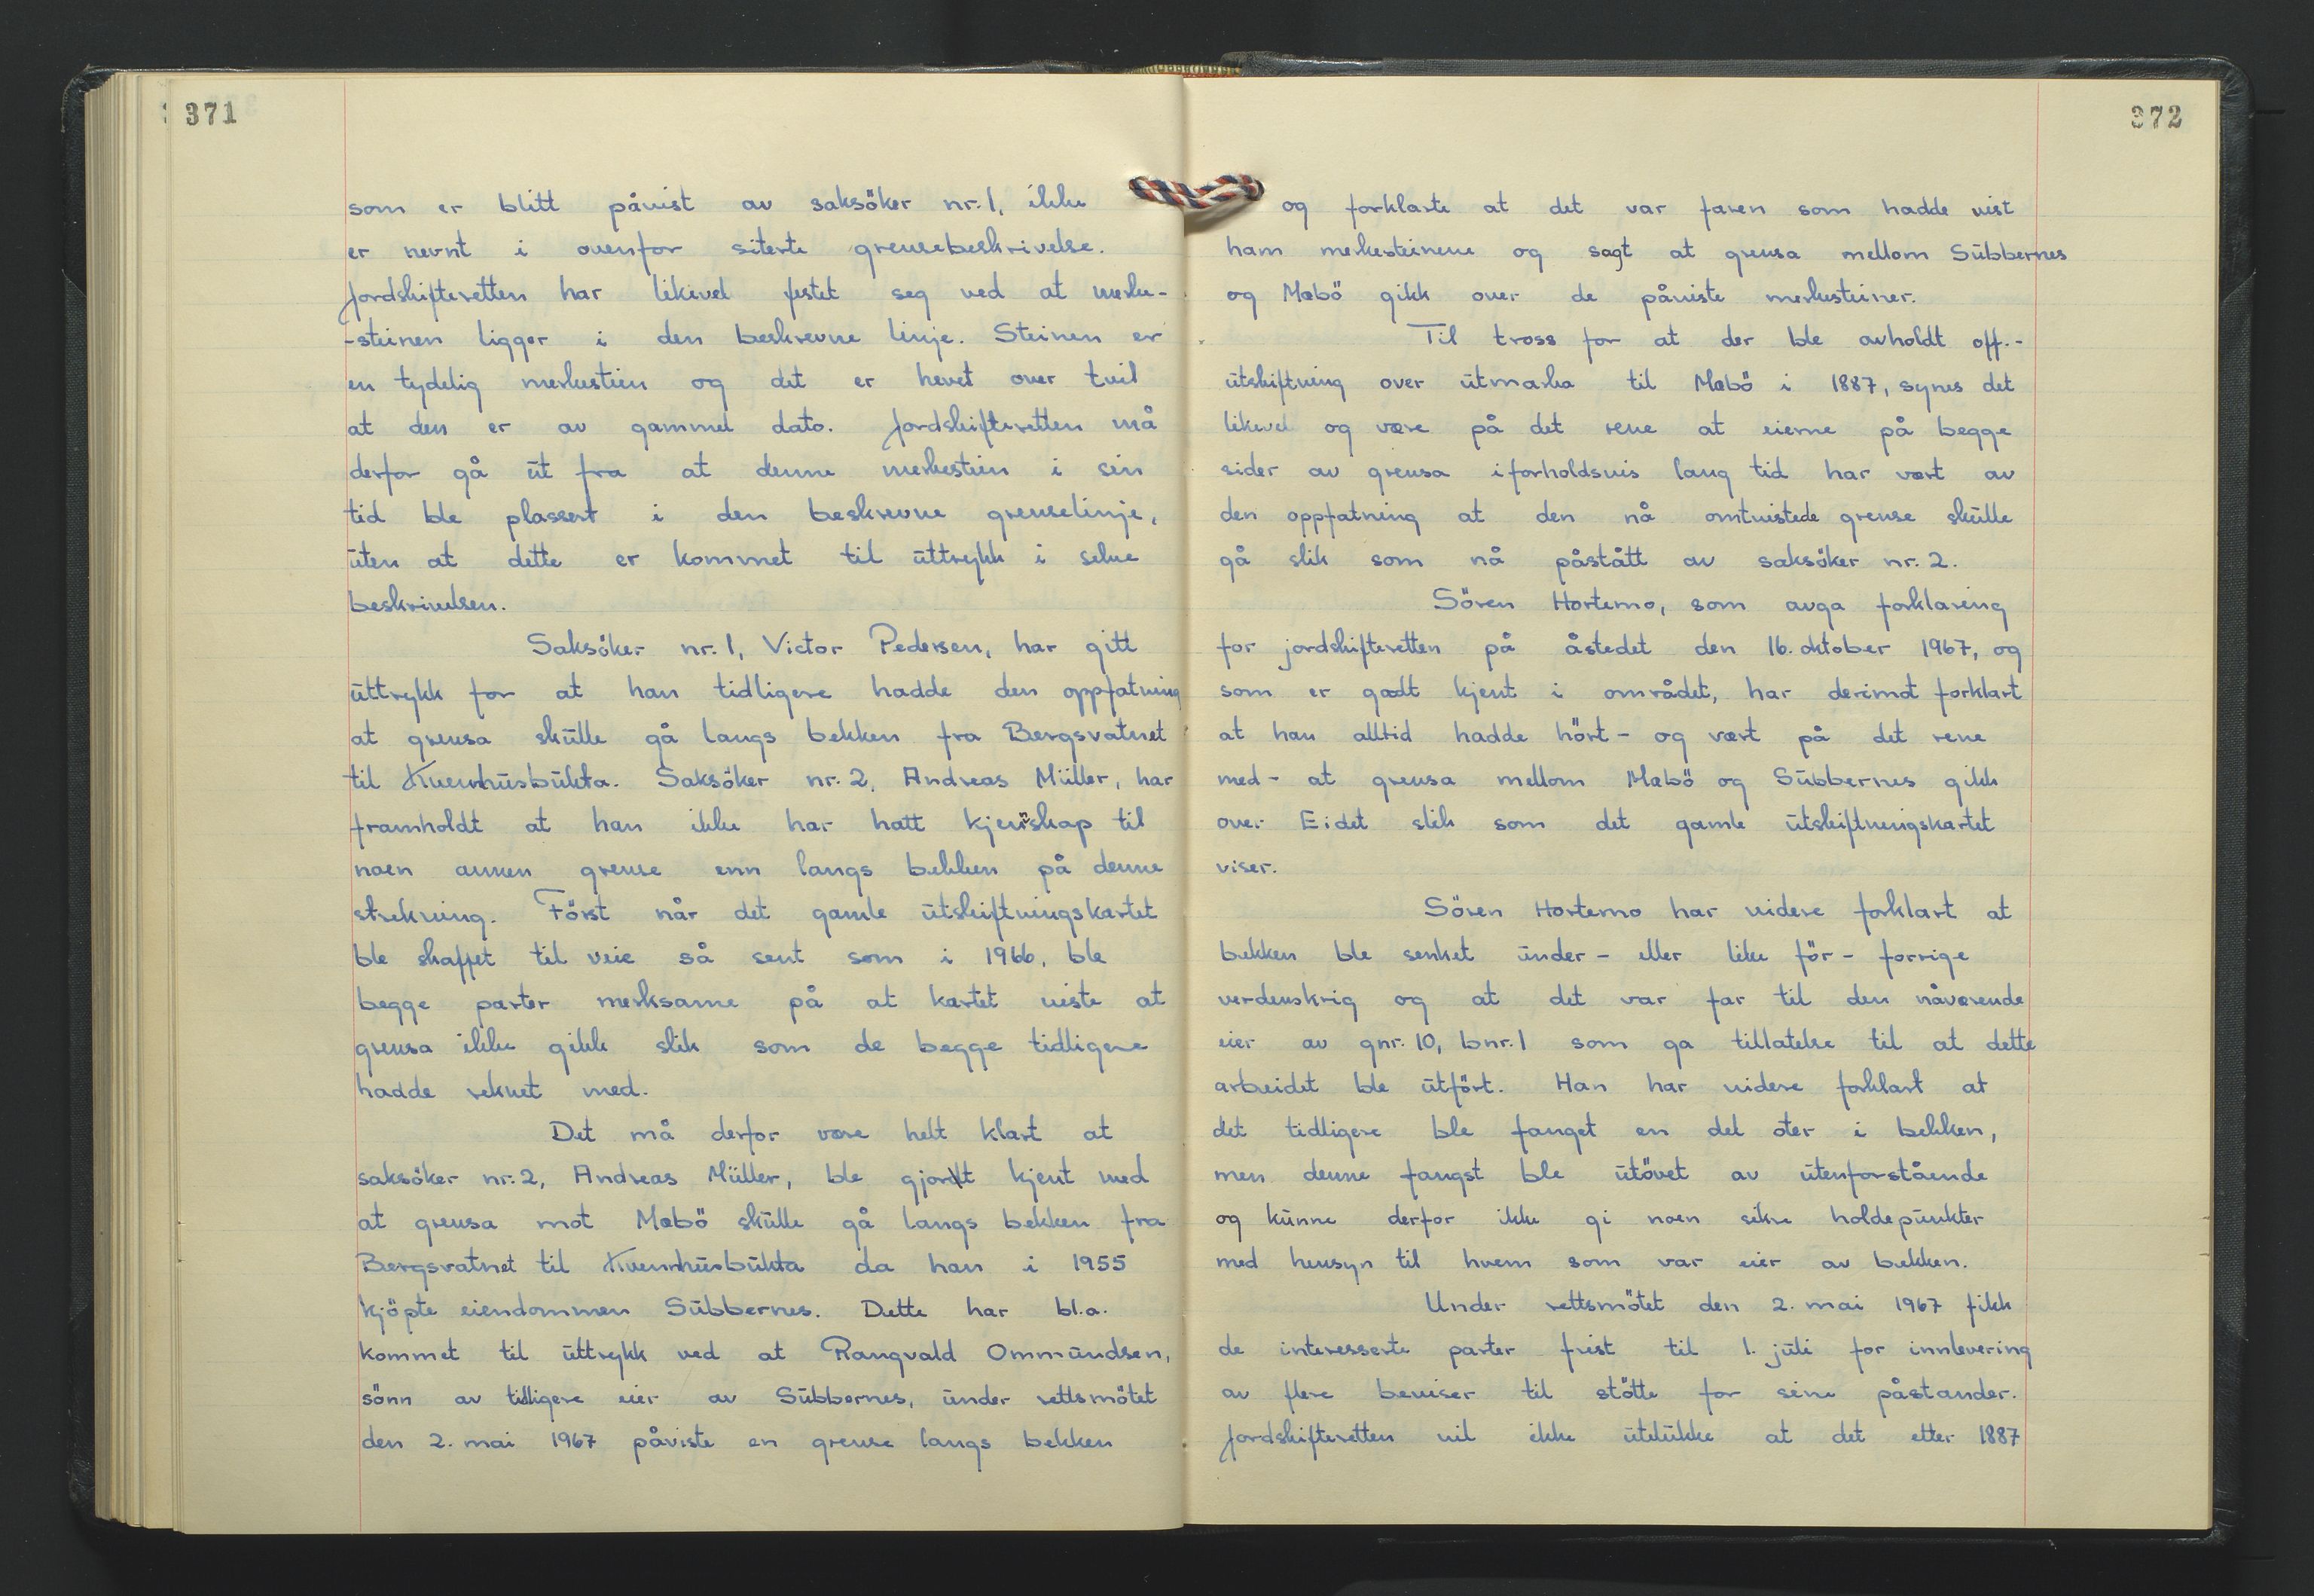 371
som er blitt påvist av saksöker nr. 1, ikke
er nevnt i ovenfor siterte grensebeskrivelse.
Jordskifteretten har likevel festet seg ved at merke-
-steinen ligger i den beskrevne linje. Steinen er
en tydelig merkestein og det er hevet over tvil
at den er av gammel dato. Jordskifteretten må
derfor gå ut fra at denne merkestein i sin
tid ble plassert i den beskrevne grenselinje,
uten at dette er kommet til uttrykk i selve
beskrivelsen.
Saksöker nr. 1, Victor Pedersen, har gitt
uttrykk for at han tidligere hadde den oppfatning
at grensa skulle gå langs bekken fra Bergsvatnet
til Kvernhusbukta. Saksöker nr. 2, Andreas Müller, har
framholdt at han ikke har hatt kjennskap til
noen annen grense enn langs bekken på denne
strekning. Först når det gamle utskiftningskartet
ble skaffet til veie så sent som i 1966, ble
begge parter merksame på at kartet viste at
grensa ikke gikk slik som de begge tidligere
hadde reknet med.
Det må derfor være helt klart at
saksöker nr. 2, Andreas Müller, ble gjort kjent med
at grensa mot Mæbö skulle gå langs bekken fra
Bergsvatnet til Kvernhusbukta da han i 1955
kjöpte eiendommen Subbernes. Dette har bl.a.
kommet til uttrykk ved at Rangvald Ommundsen,
sönn av tidligere eier av Subbernes, under rettsmötet
den 2. mai 1967 påviste en grense langs bekken
372
og forklarte at det var faren som hadde vist
ham merkesteinene og sagt at grensa mellom Subbernes
og Mæbö gikk over de påviste merkesteiner.
Til tross for at der ble avholdt off.-
utskiftning over utmarka til Mæbö i 1887, synes det
likevel og være på det rene at eierne på begge
sider av grensa iforholdsvis lang tid har vært av
den oppfatning at den nå omtvistede grense skulle
gå slik som nå påstått av saksöker nr. 2.
Sören Hortemo, som avga forklaring
for jordskifteretten på åstedet den 16. oktober 1967, og
som er godt kjent i området, har derimot forklart
at han alltid hadde hört - og vært på det rene
med - at grensa mellom Mæbö og Subbernes gikk
over Eidet slik som det gamle utskiftningskartet
viser.
Sören Hortemo har videre forklart at
bekken ble senket under - eller like för - forrige
verdenskrig og at det var far til den nåværende
eier av gnr. 10, bnr. 1 som ga tillatelse til at dette
arbeidet ble utfört. Han har videre forklart at
det tidligere ble fanget en del oter i bekken,
men denne fangst ble utövet av utenforstående
og kunne derfor ikke gi noen sikre holdepunkter
med hensyn til hvem som var eier av bekken.
Under rettsmötet den 2. mai 1967 fikk
de interesserte parter frist til 1. juli for innlevering
av flere beviser til stötte for sine påstander.
Jordskifteretten vil ikke utelukke at det etter 1887